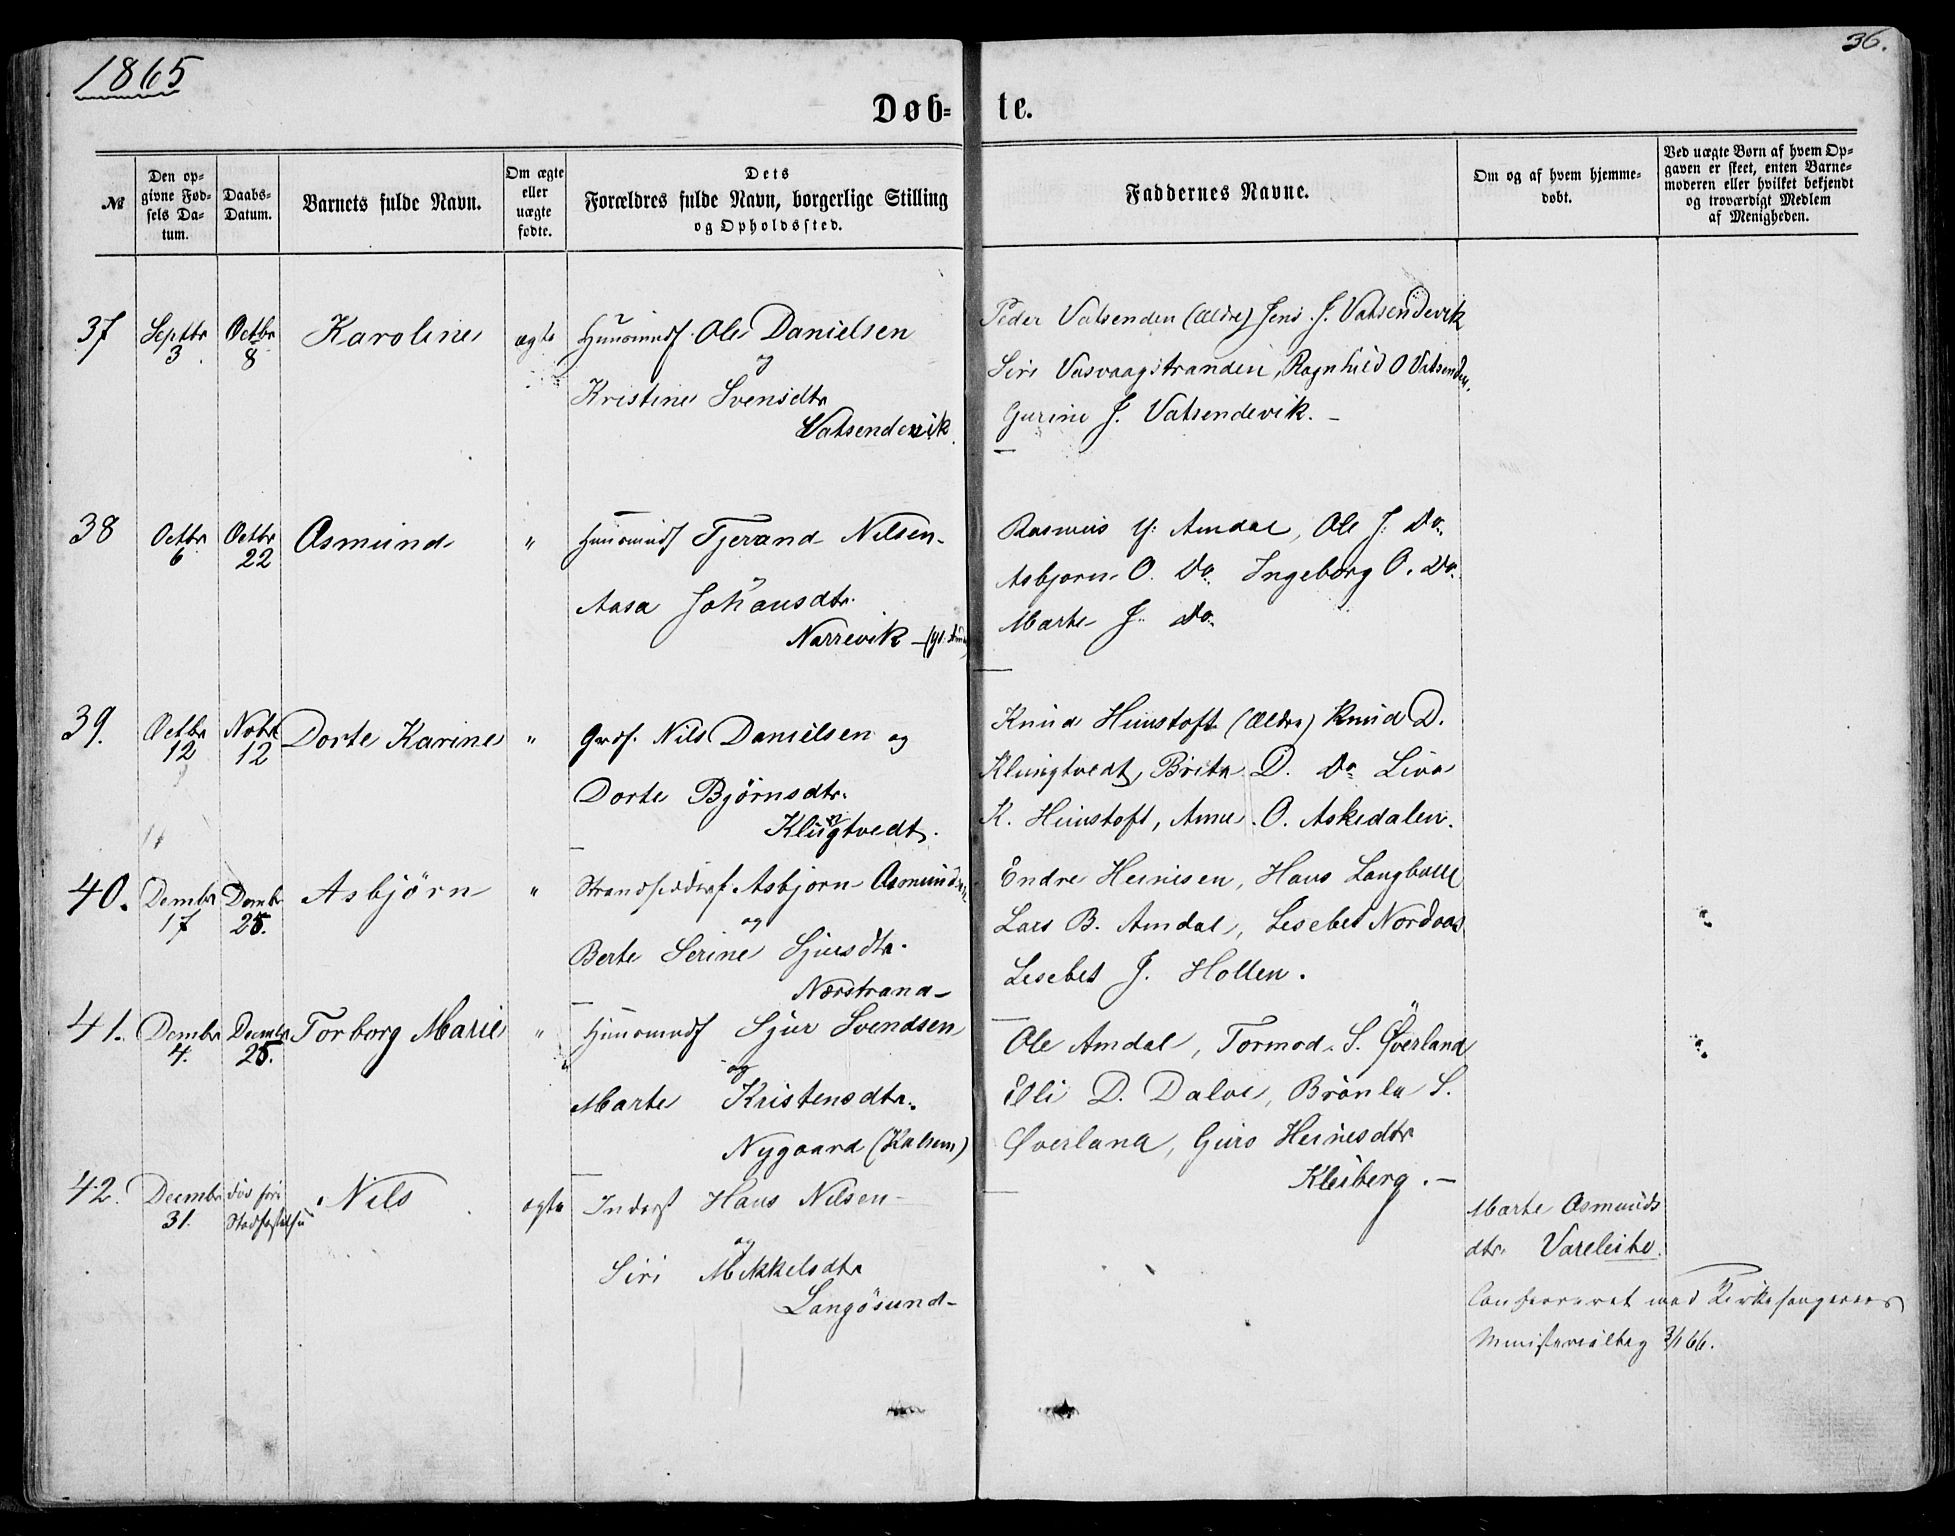 1865
36.
Døb- te.
№
Den opgivne Fødsels Datum.
Daabs-Datum.
Barnets fulde Navn.
Om ægte eller uægte fødte.
Dets Forældres fulde Navn, borgerlige Stilling og Opholdssted.
Faddernes Navne.
Om og af hvem hjemmedøbt.
Ved uægte Børn af hvem Opgaven er skeet, enten Barnemoderen eller hvilket bekjendt og troværdigt Medlem af Menigheden.
37 Septbr 3. Octbr 8 Karoline ægte Huusmnd Ole Danielsen
og
Kristine Svensdtr
Vatsendevik.
Peder Vatsenden (Ældre) Jens J. Vatsendevik
Siri Vasvaagstranden, Ragnhild O Vatsenden,
Gurine J. Vatsendevik. –
38 Octbr 6 Octbr 22 Osmund " Huusmnd Tjerand Nilsen
Aasa Johansdtr.
Narrevik –
Rasmus Amdal, Ole J. Do.
Asbjørn O. Do. Ingeborg O. Do.
Marte J. Do.
39. Octbr 12 Nobr 12 Dorte Karine " Grdf. Nils Danielsen og
Dorte Bjørnsdtr.
Klungtvedt.
Knud Hunstoft (Ældre) Knud D.
Klungtvedt, Brita D. Do Liva
K. Hunstoft, Anne. O. Askedalen.
40. Dembr 17 Dembr 25. Asbjørn " Strandsidder Asbjørn Osmundsen
og
Berte Serine Sjursdtr.
Nærstrand –
Endre Heinesen, Hans Langballe
Lars B. Amdal, Lisebet Nordvas
Lisebet J. Hollen.
41. Dembr 4. Decmbr 25. Torborg Marie " Huusmnd Sjur Svendsen
og
Marte Kristensdtr.
Nygaard
Ole Amdal, Tormod S. Øverland
Elli D. Dalve, Brønla S.
Øverland, Guro Heinesdtr
Kleiberg. –
42. Decmbr 31. død før Stadfæstelsen Nils ægte Inderst Hans Nilsen
og
Siri Mikkelsdtr
Langøsund –
Marte Osmunds
dtr. Vareleite.
Confereret med Kirkesangerens
Ministerialbog 3/1 66.